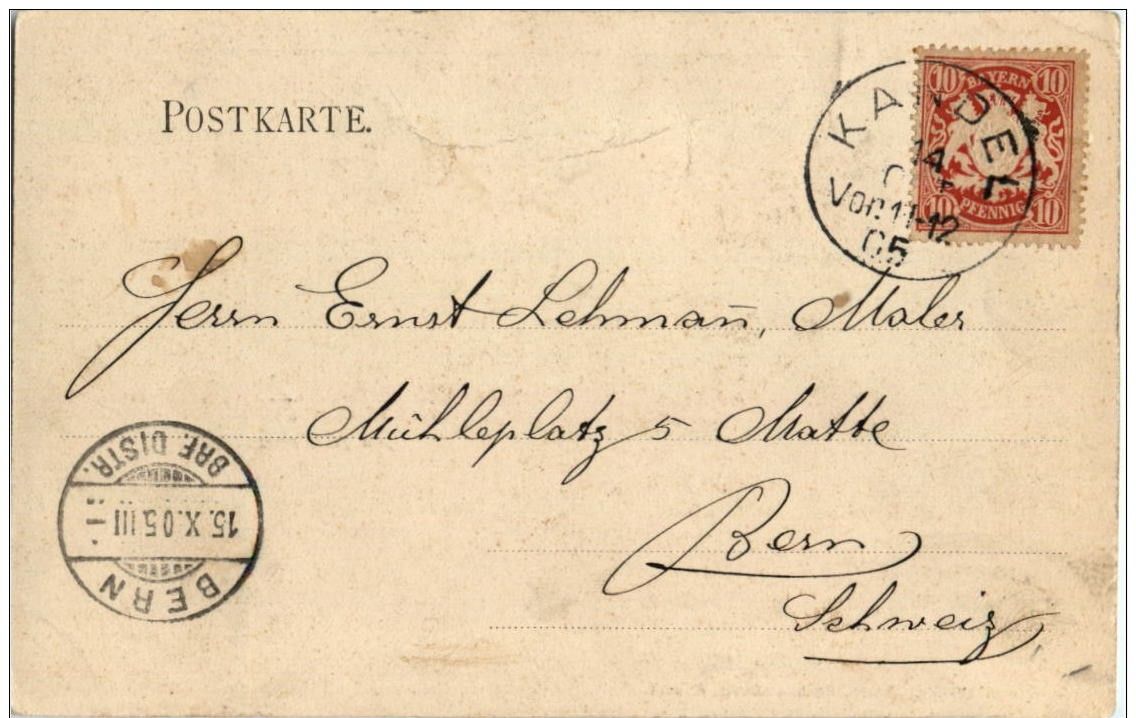 POSTKARTE.
10 BAYERN 10
10 PFENNIG 10
KANDEL
14
Vor. 11-12
05
Herrn Ernst Lehman̄, Maler
Mühleplatz 5 Matte
Bern
Schweiz
BERN
15. X. 05 III
BRF. DISTR.